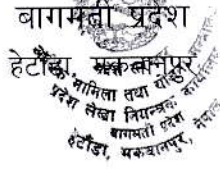 बागमती प्रदेश
हेटौंडा, मकवानपुर
मामिला तथा योजना
प्रदेश लेखा नियन्त्रक कार्यालय
बागमती प्रदेश
हेटौंडा, मकवानपुर, नेपाल